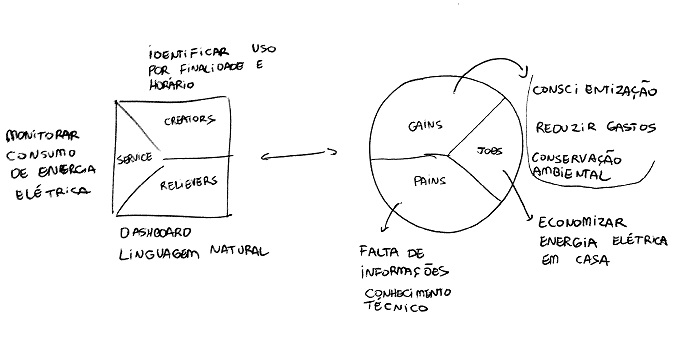 IDENTIFICAR USO
POR FINALIDADE E
HORÁRIO
MONITORAR
CONSUMO
DE ENERGIA
ELÉTRICA
CREATORS
SERVICE
RELIEVERS
DASHBOARD
LINGUAGEM NATURAL
GAINS
JOBS
PAINS
CONSCIENTIZAÇÃO
REDUZIR GASTOS
CONSERVAÇÃO
AMBIENTAL
ECONOMIZAR
ENERGIA ELÉTRICA
EM CASA
FALTA DE
INFORMAÇÕES
CONHECIMENTO
TÉCNICO